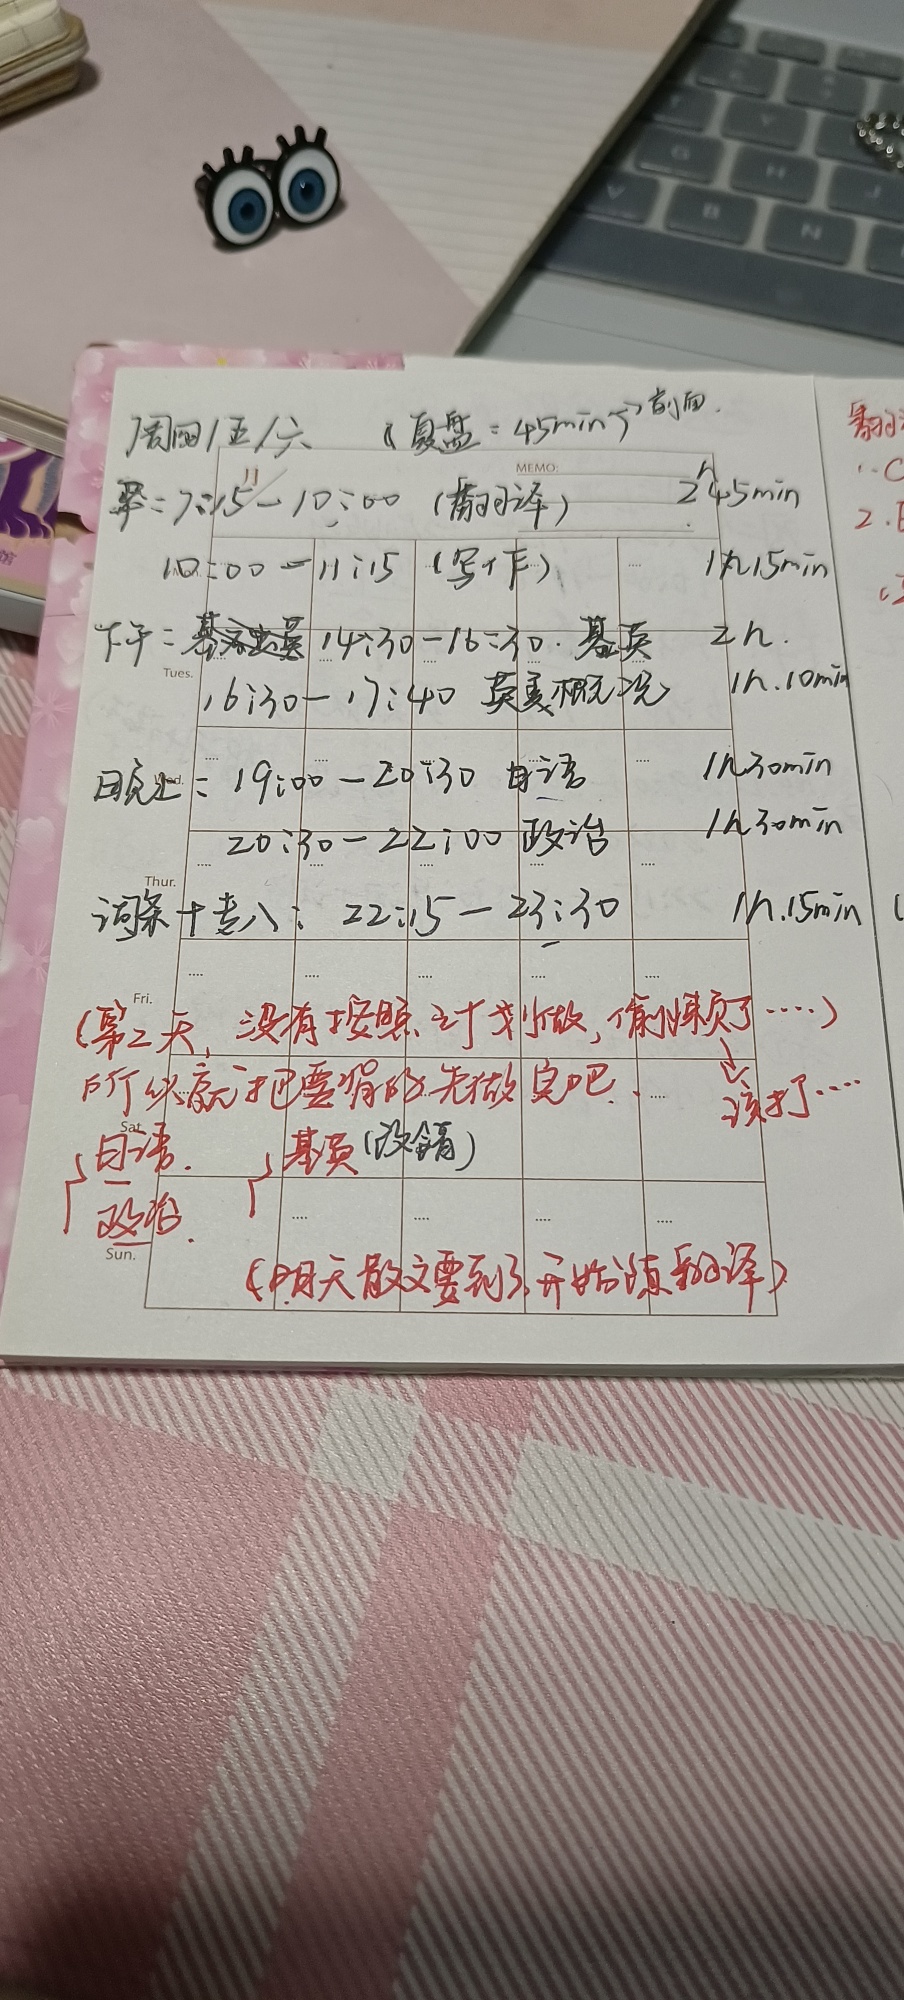 周四/五/六 (复盘:45min → 前面.
MEMO:
早:7:15-10:00 (翻译) 2h45min
10:00-11:15 (写作) 1h15min
下午: 14:30-16:30. 基英 2h.
Tues.
16:30-17:40 英美概况 1h.10min
晚上:19:00-20:30 日语 1h30min
Wed.
20:30-22:00 政治 1h30min
Thur.
词条+专八: 22:15-23:30 1h.15min
Fri.
(第2天,没有按照计划做,偷懒了····)
所以就把要背的先做完吧.. 该打····
Sat.
日语. 基英(改错)
政治.
Sun.
(明天散文要到了,开始练翻译)
1.
2.